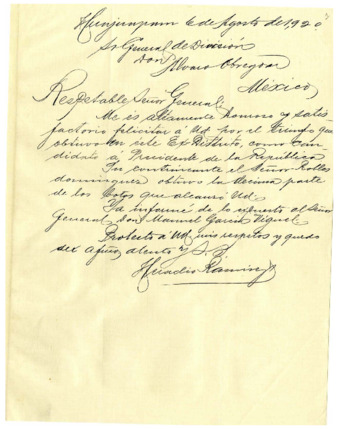 6 de Agosto de 1920
3
Sr General de División
Don
Alvaro Obregon
México
Respetable Señor General:
Me es altamente honroso y satis
factorio felicitar á Ud por el triunfo que
obtuvo en este Ex Distrito, como Can
didato a Presidente de la Republica
Su contrincante el Señor Robles
dominguez obtuvo la decima parte
de los votos que alcanzó Ud.
Ya informé de lo expuesto al Señor
General Don Manuel García Vigueł.
Protesto á Ud. mis respetos y quedo
su afmo, atento y S. S.
Ramirez